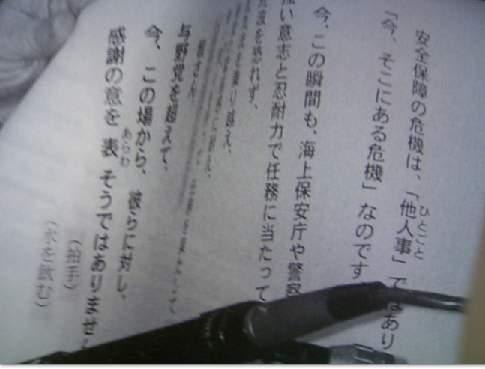 安全保障の危機は、「他人事」ではあり
ひとごと
「今、そこにある危機」なのです
今、この瞬間も、海上保安庁や警察
強い意志と忍耐力で任務に当たって
を恐れず、
を乗り越え、
与野党を超えて、
今、この場から、彼らに対し、
感謝の意を表そうではありませ
あらわ
（拍手）
（水を飲む）